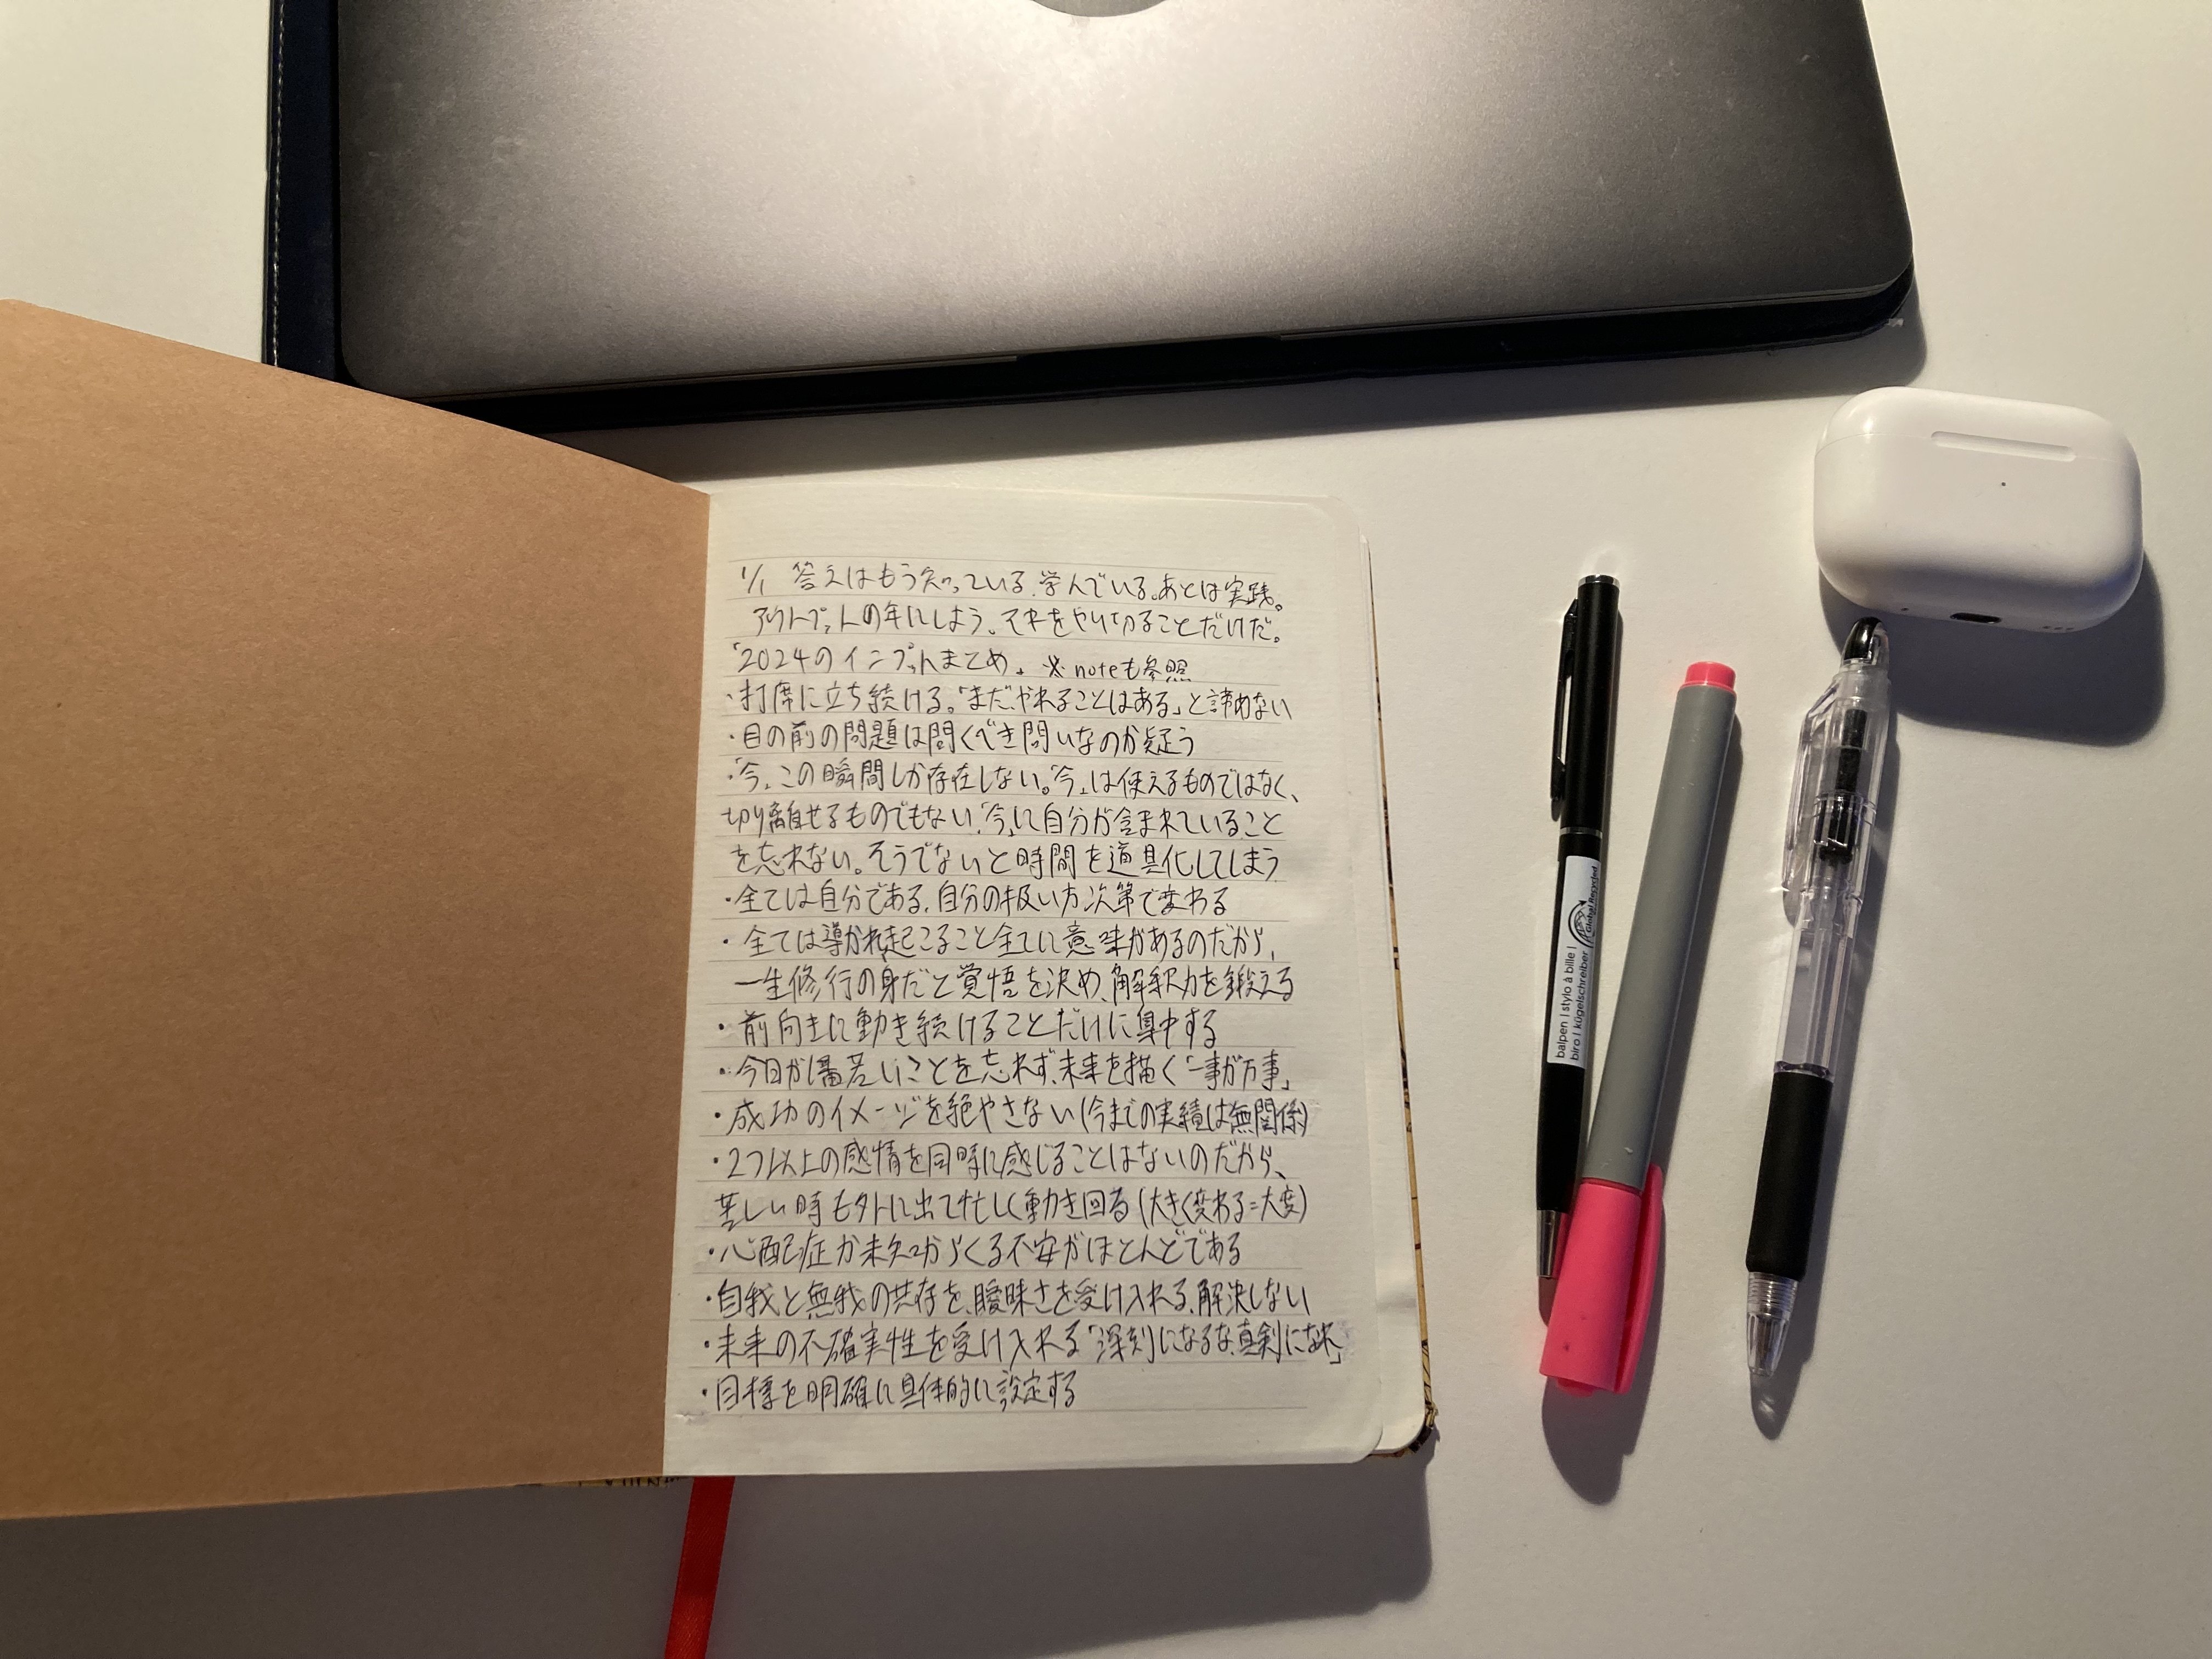 1/1 答えはもう知っている。学んでいる。あとは実践。
アウトプットの年にしよう。それをやり切ることだけだ。
「2024のインプットまとめ」※noteも参照
・打席に立ち続ける。「まだやれることはある」と諦めない
・目の前の問題は問くべき問いなのか疑う
・「今」この瞬間しか存在しない。「今」は使えるものではなく、
切り離せるものでもない。「今」に自分が含まれていること
を忘れない。そうでないと時間を道具化してしまう
・全ては自分である。自分の扱い方次第で変わる
・全ては導かれ起こること全てに意味があるのだから、
一生修行の身だと覚悟を決め、解釈力を鍛える
・前向きに動き続けることだけに集中する
・今日が1番若いことを忘れず、未来を描く「一事が万事」
・成功のイメージを絶やさない(今までの実績は無関係)
・2つ以上の感情を同時に感じることはないのだから、
苦しい時も外に出て忙しく動き回る(大きく変わる=大変)
・心配症か未知からくる不安がほとんどである
・自我と無我の共存を、曖昧さを受け入れる、解決しない
・未来の不確実性を受け入れる「深刻になるな、真剣になれ」
・目標を明確に具体的に設定する
balpen | stylo à bille |
biro | kügelschreiber
Global Recycled